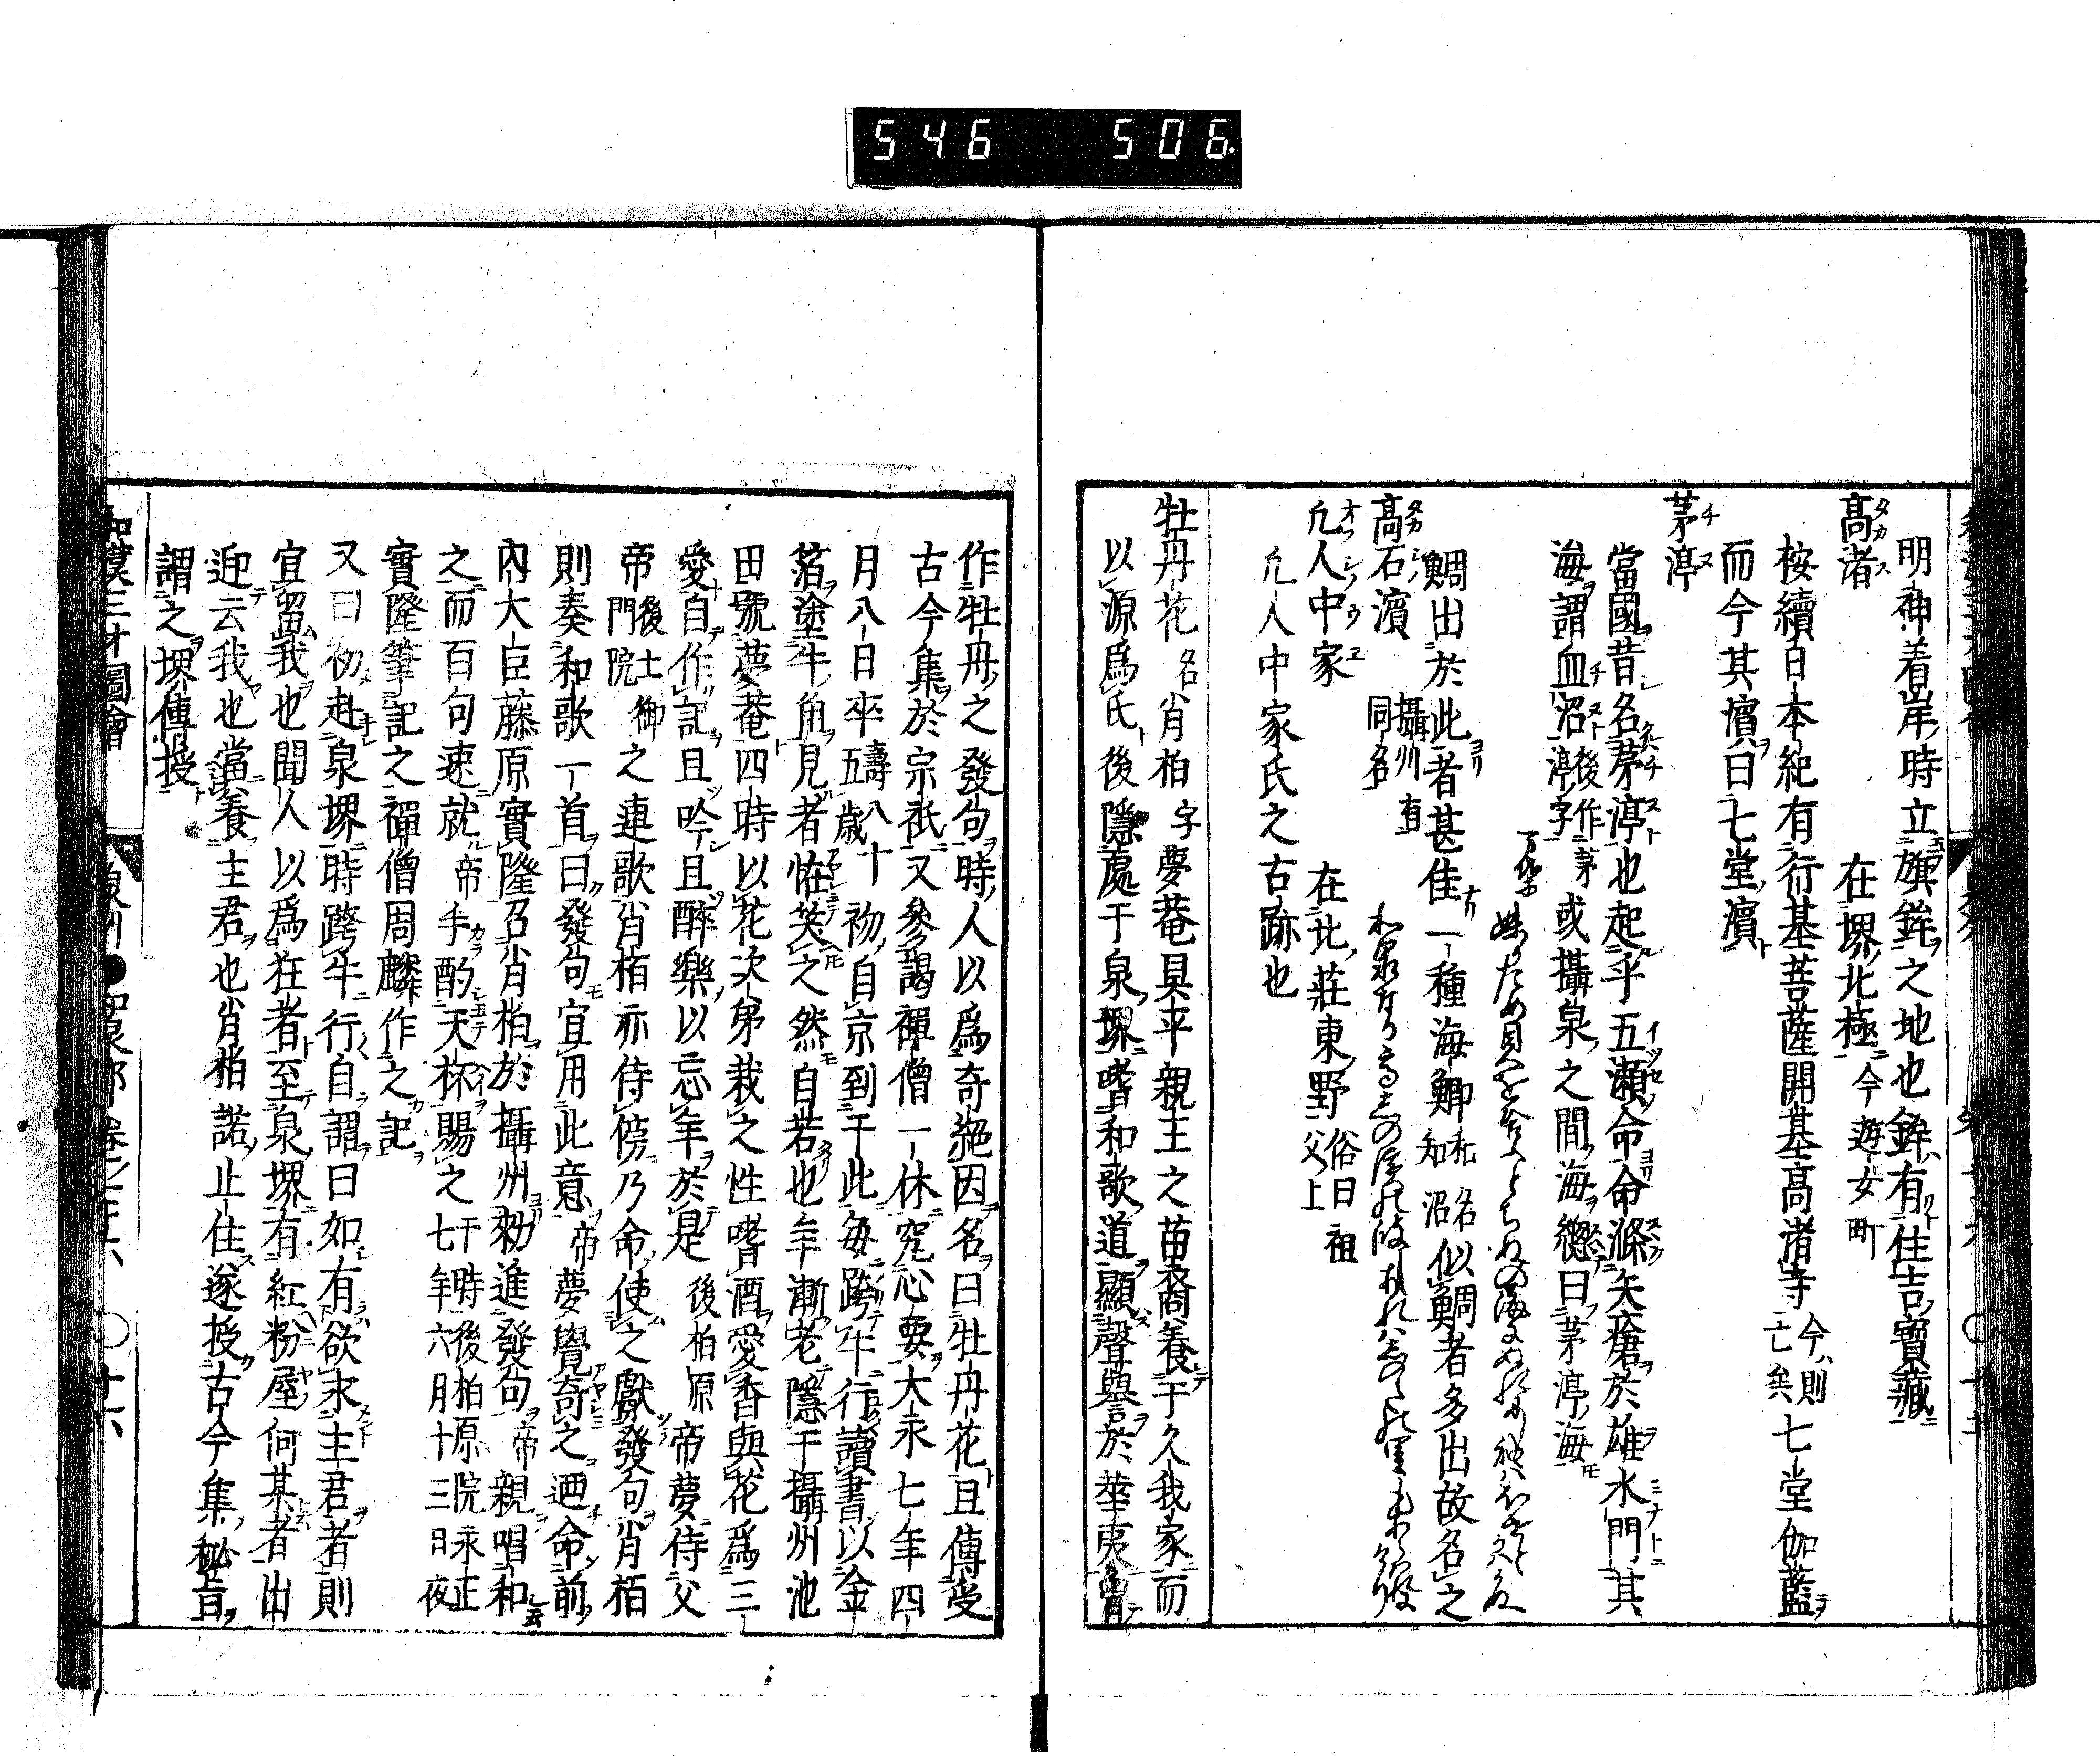 546 506
明神着岸時立旗鉾之地也鉾有住吉寶藏
高渚 在堺北極今遊女町
桉續日本紀有行基菩薩開基高渚寺今則亡矣七堂伽藍
而今其濵曰七堂濵
茅渟
當國昔名茅渟也起乎五瀬命命滌矢瘡於雄水門其
海謂血沼後作茅渟字或攝泉之間海緫曰茅渟海
鯛出於此者甚佳一種海鯽名知沼似鯛者多出故名之
高石濵 攝州有同名
九人中家 在此莊東野俗曰祖父上
九人中家氏之古跡也
牡丹花 名肖柏字夢菴具平親王之苗裔養于久我家而
以源爲氏後隱處于泉堺嗜和歌道顯聲譽於華夷嘗
作牡丹之發句時人以爲奇絕因名曰牡丹花且傳受
古今集於宗祇又參謁禪僧一休究心要大永七年四
月八日卒壽八十五歳初自京到于此每跨牛行讀書以金
箔塗牛角見者恠笑之然自若也年漸老隱于攝州池
田號夢菴四時以花次第栽之性嗜酒愛香與花爲三
愛自作記且吟且醉樂以忘年於是後柏原帝夢侍父
帝後土御門院之連歌肖栢亦侍傍乃命使之獻發句肖栢
則奏和歌一首曰發句宜用此意帝夢覺奇之迺命前
內大臣藤原實隆召肖柏於攝州勑進發句帝親唱和
之而百句速就帝手酌天杯賜之于時後柏原院永正七年六月十三日夜
實隆筆記之禪僧周麟作之記
又曰初赴泉堺時跨牛行自謂曰如有欲求主君者則
宜留我也聞人以爲狂者至泉堺有紅粉屋何某者出
迎云我也當養主君也肖柏諾止住遂授古今集秘旨
謂之堺傳授
和漢三才圖會 泉州 ●和泉郡